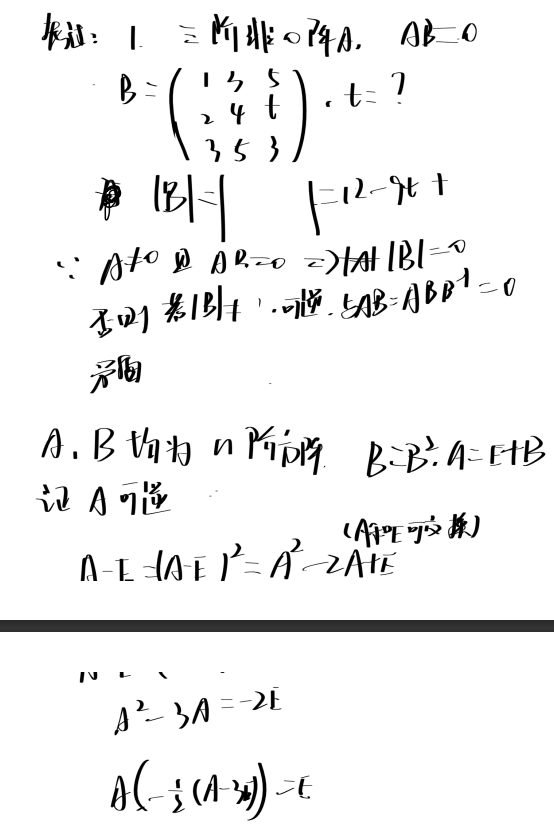 1. 三阶非0阵A. AB=0
B=(1 3 5
2 4 t
3 5 3). t=?
|B|=| |=12-9t+
∵ A≠0 且 AB=0 => |B|=0
否则 若|B|≠ 可逆. 与AB=ABB⁻¹=0
矛盾
A, B均为n阶方阵 B=B². A=E+B
证A可逆
(A和E可交换)
A-E=(A-E)²=A²-2A+E
A²-3A=-2E
A(-1/2(A-3E))=E